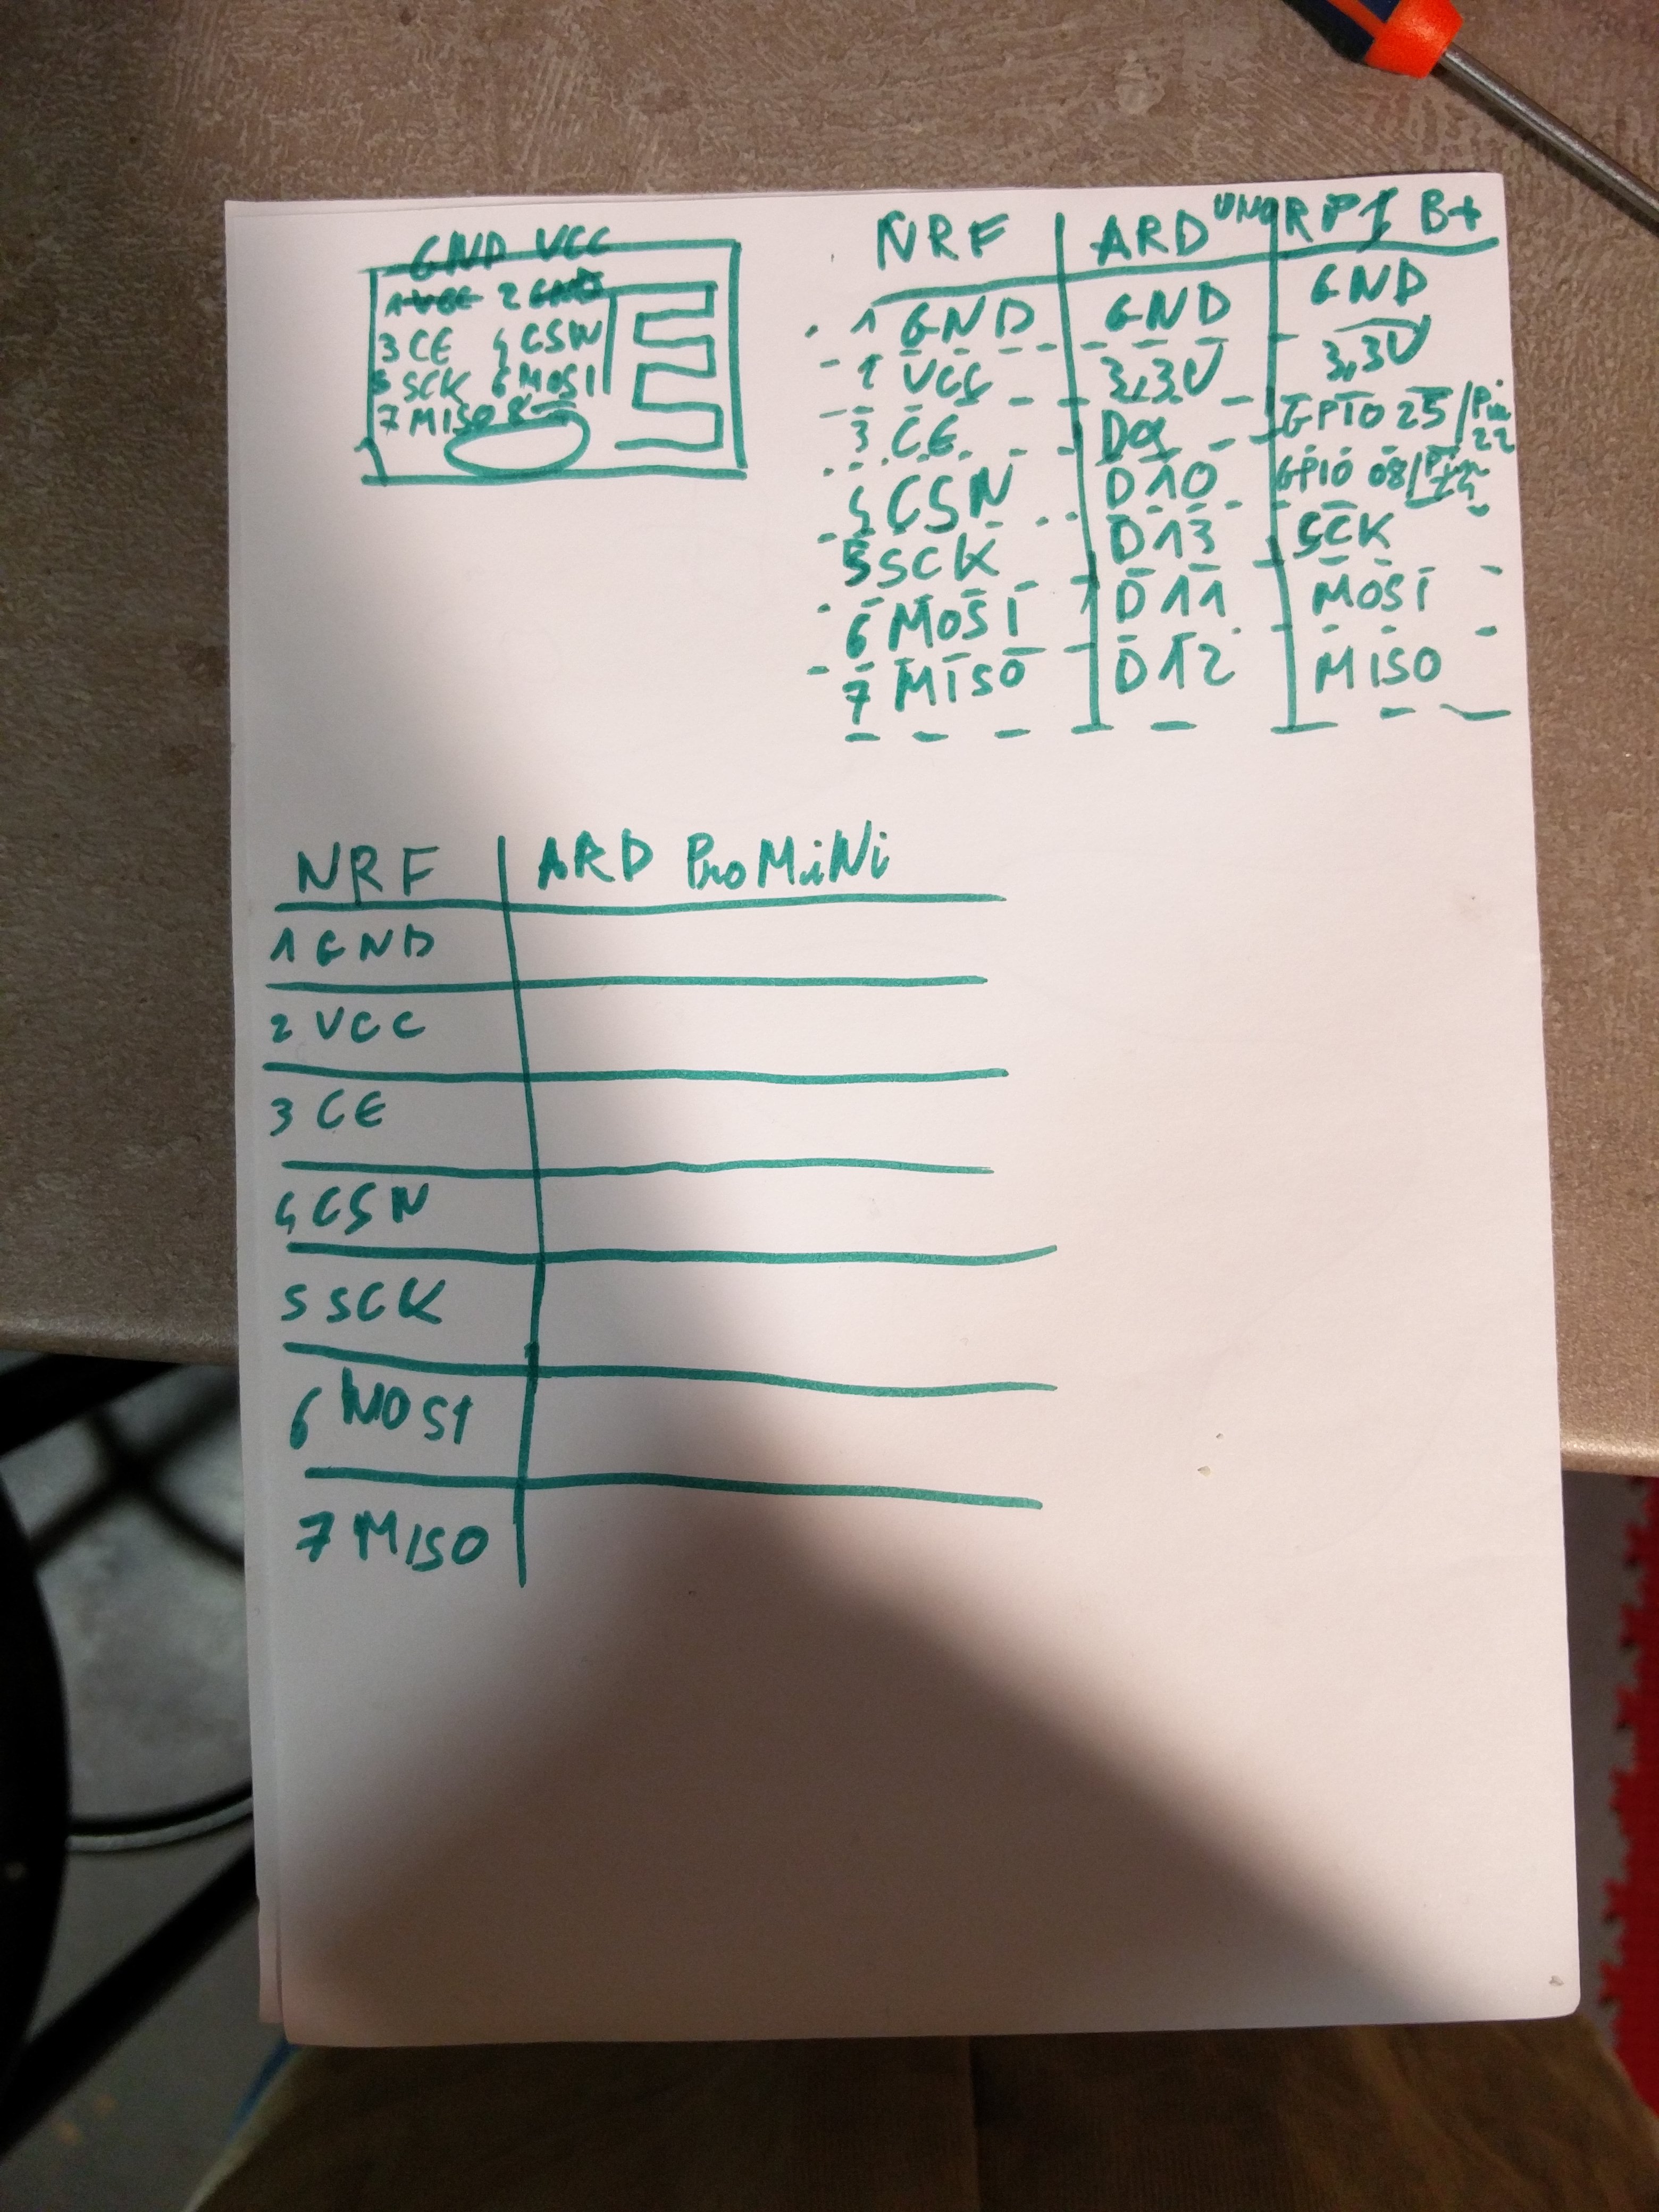 GND VCC
1 VCC 2 GND
3 CE 4 CSN
5 SCK 6 MOSI
7 MISO 8
NRF ARD UNO RPI B+
1 GND GND GND
2 VCC 3,3V 3,3V
3 CE D9 GPIO 25/Pin 22
4 CSN D10 GPIO 08/Pin 24
5 SCK D13 SCK
6 MOSI D11 MOSI
7 MISO D12 MISO
NRF ARD ProMiNi
1 GND
2 VCC
3 CE
4 CSN
5 SCK
6 MOSI
7 MISO